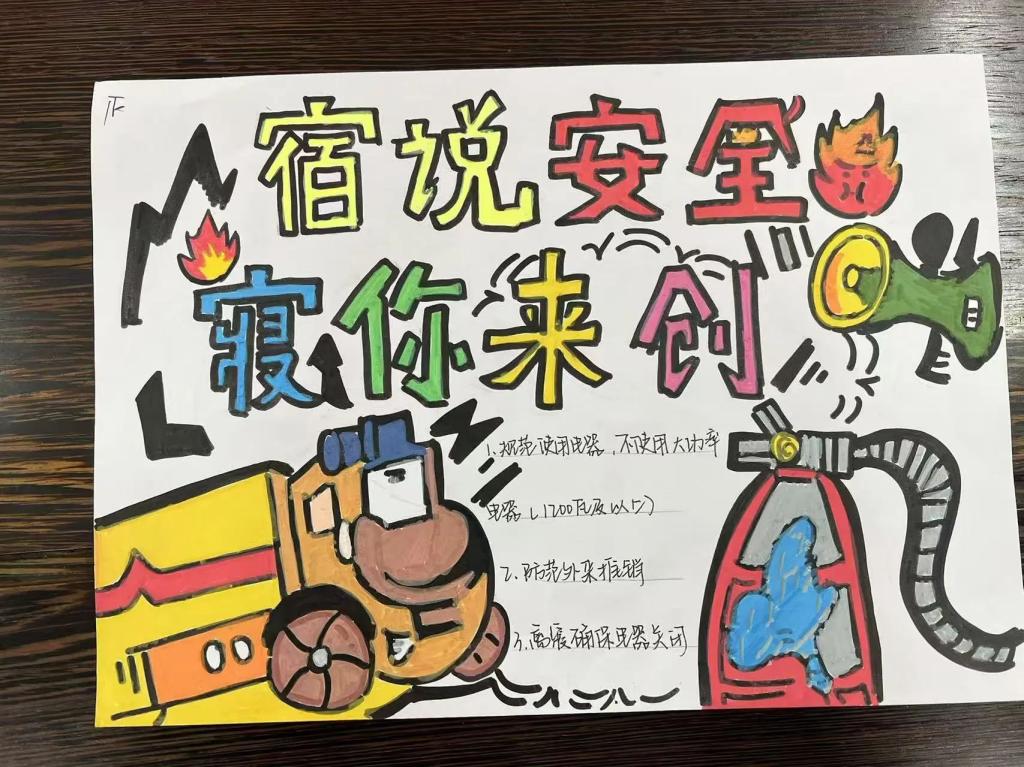 宿说安全
寝你来创
1、规范使用电器,不使用大功率
电器(1200瓦及以上)
2、防范外来推销
3、离寝确保电器关闭